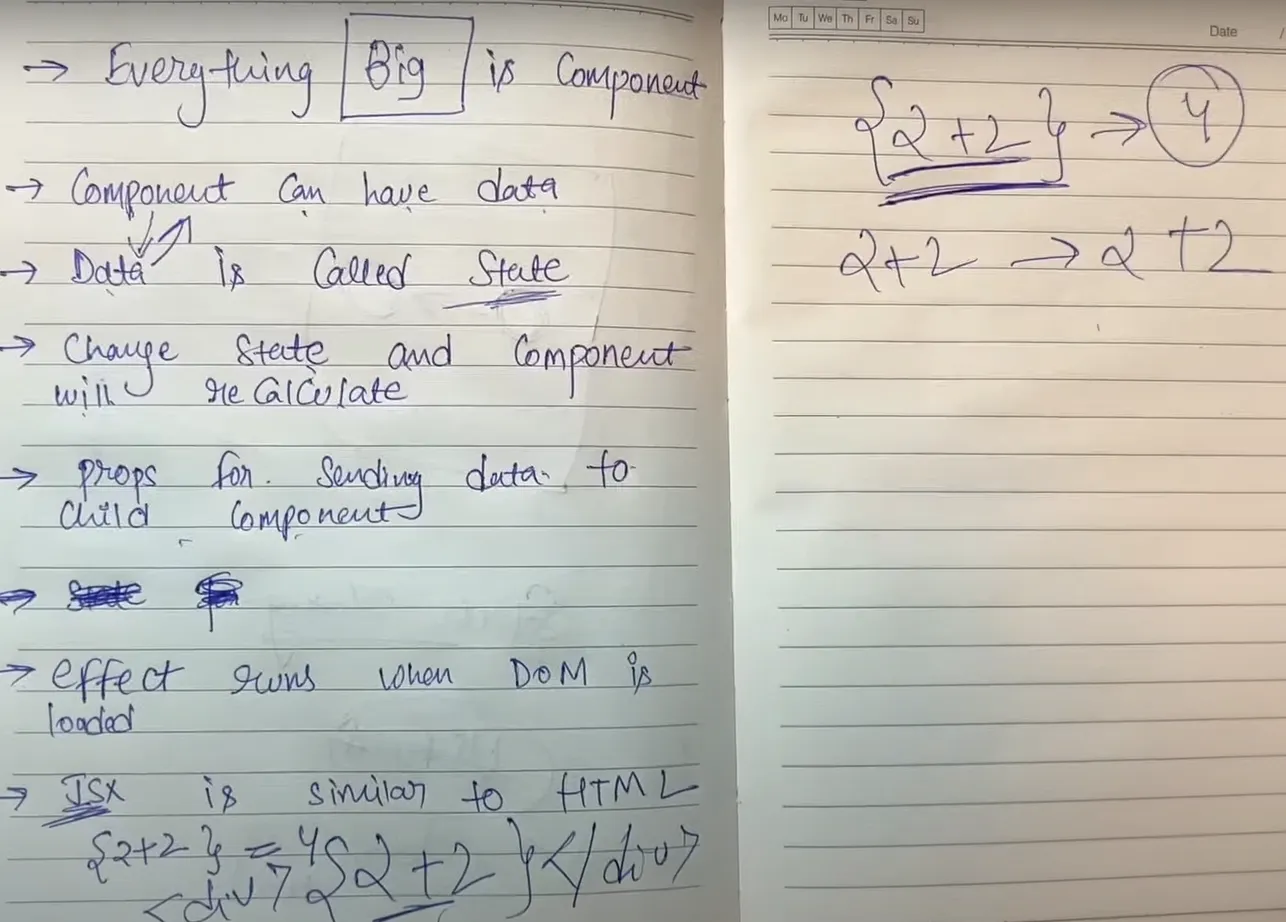 → Everything Big is Component
→ Component Can have data
→ Data is Called State
→ Change State and Component
will reCalculate
→ props for sending data to
Child Component
→
→ effect runs when DOM is
loaded
→ JSX is similar to HTML
{2+2} = 4
<div> {2+2} </div>
Mo Tu We Th Fr Sa Su
Date /
{2+2} → 4
2+2 → 2+2